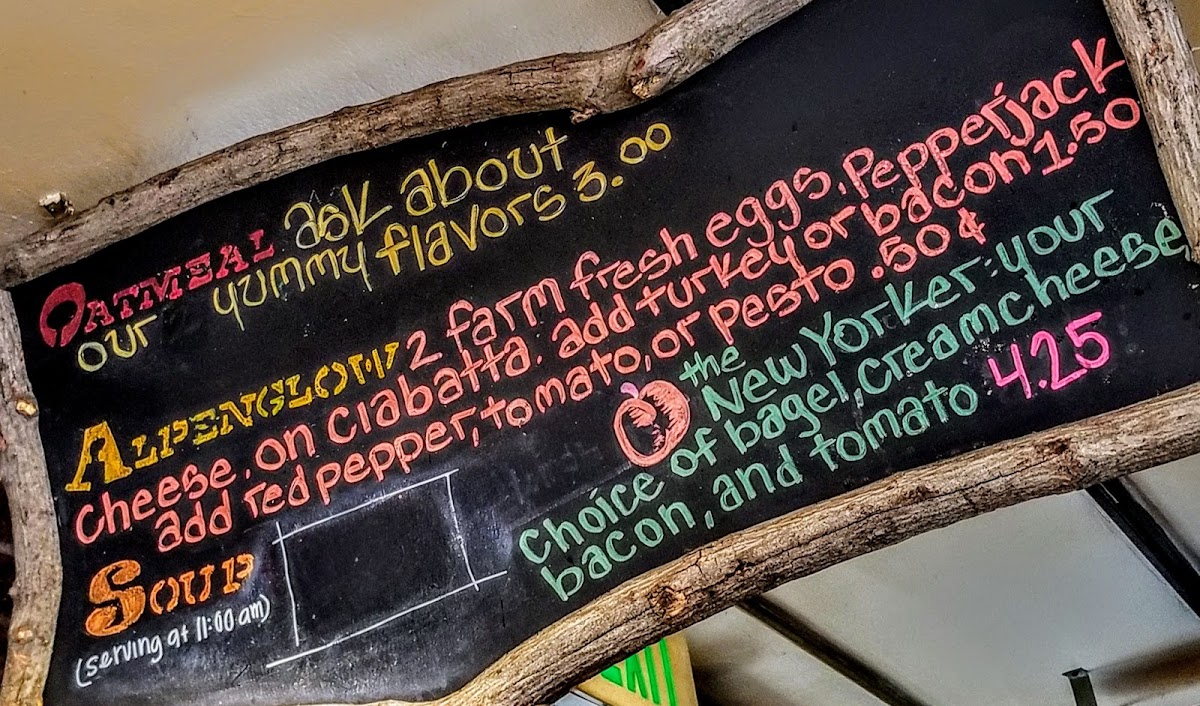 OATMEAL ask about
our yummy flavors 3.00
ALPENGLOW 2 farm fresh eggs, Pepperjack
cheese, on ciabatta. add turkey or bacon 1.50
add red pepper, tomato, or pesto .50¢
SOUP
(serving at 11:00 am)
the
New Yorker: your
choice of bagel, creamcheese
bacon, and tomato 4.25